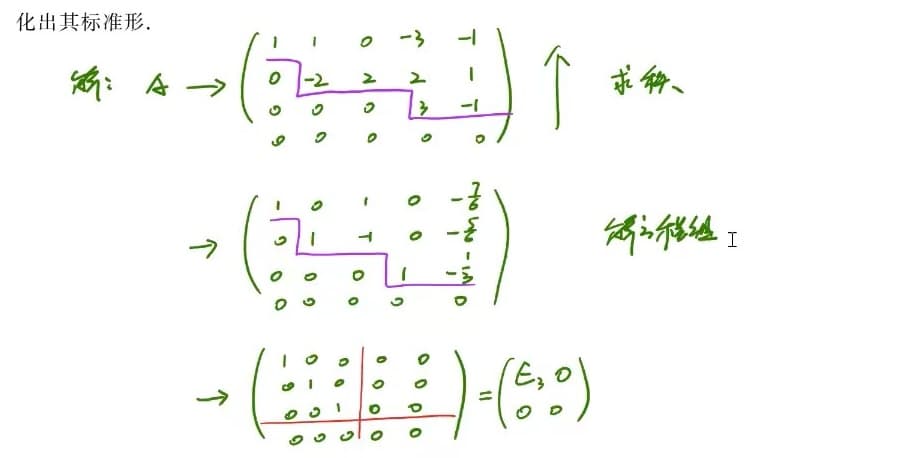 化出其标准形.
解: A → ( 1 1 0 -3 -1 ↑ 求秩、
0 -2 2 2 1
0 0 0 3 -1
0 0 0 0 0 )
→ ( 1 0 1 0 -7/6 解方程组
0 1 -1 0 -5/6
0 0 0 1 -1/3
0 0 0 0 0 )
→ ( 1 0 0 0 0
0 1 0 0 0
0 0 1 0 0
0 0 0 0 0 ) = ( E₃ 0
0 0 )